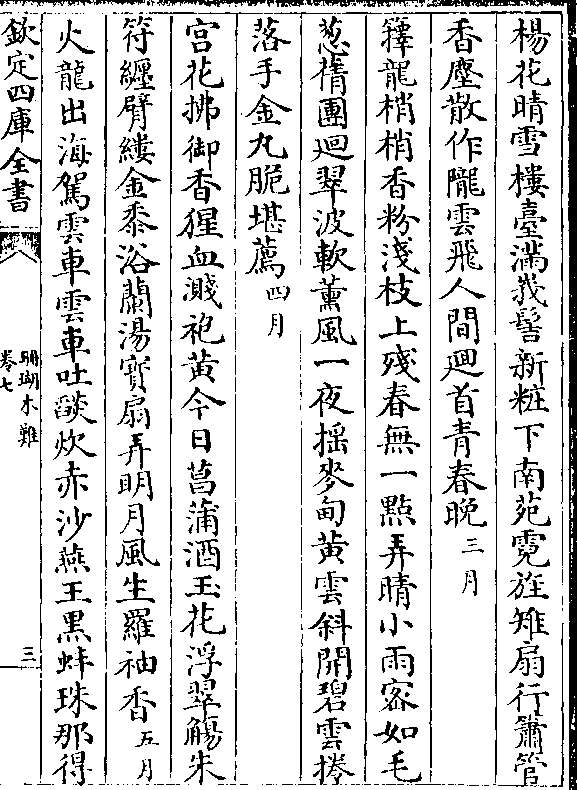 楊花晴雪樓臺滿峩髻新粧下南苑霓旌雉扇行簫管
香塵散作隴雲飛人間廻首青春晚三月
籜龍梢梢香粉淺枝上殘春無一點弄晴小雨密如毛
葱蒨團廻翠波軟薰風一夜揺麥甸黄雲斜開碧雲捲
落手金丸脆堪薦四月
宫花拂御香猩血濺袍黄今日菖蒲酒玉花浮翠觴朱
符纒臂縷金黍浴蘭湯寳扇弄明月風生羅袖香五月
火龍出海駕雲車雲車吐燄炊赤沙燕王黒蚌珠那得
欽定四庫全書
珊瑚木難
卷七
三